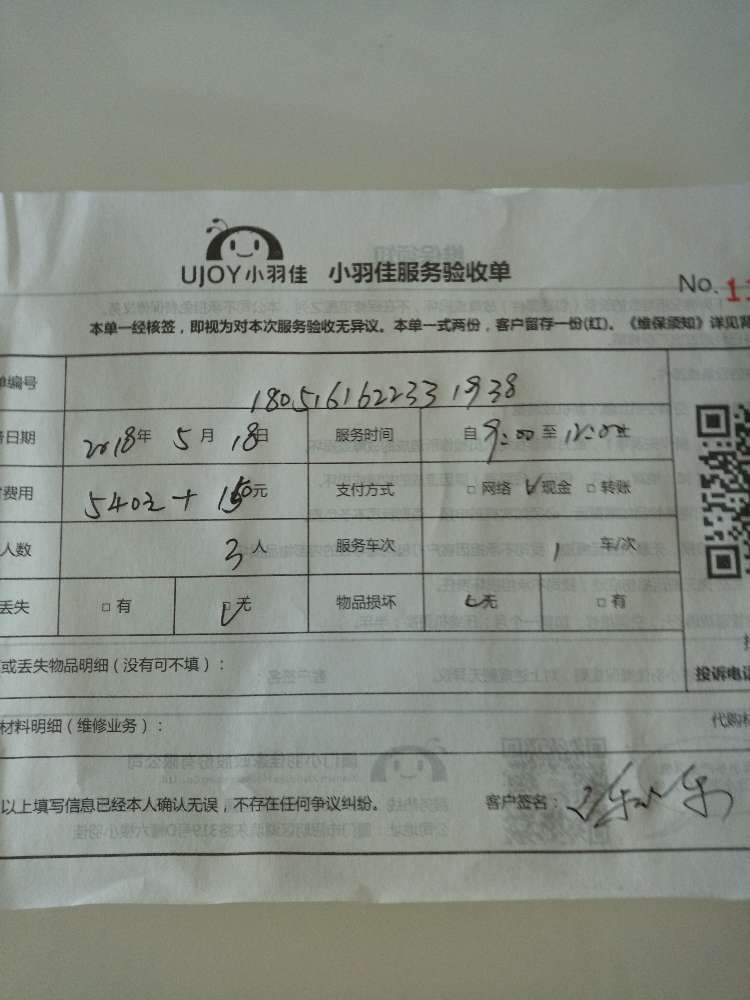 UJOY小羽佳 小羽佳服务验收单
No. 11
本单一经核签，即视为对本次服务验收无异议。本单一式两份，客户留存一份(红)。《维保须知》详见背
单编号 180516162233 1938
务日期 2018年 5月 18日 服务时间 自9:00至12:00止
费用 540元 + 150元 支付方式 □ 网络 ☑ 现金 □ 转账
人数 3人 服务车次 1 车/次
丢失 □ 有 ☑ 无 物品损坏 ☑ 无 □ 有
或丢失物品明细（没有可不填）：
投诉电话
材料明细（维修业务）： 代购材
以上填写信息已经本人确认无误，不存在任何争议纠纷。 客户签名：